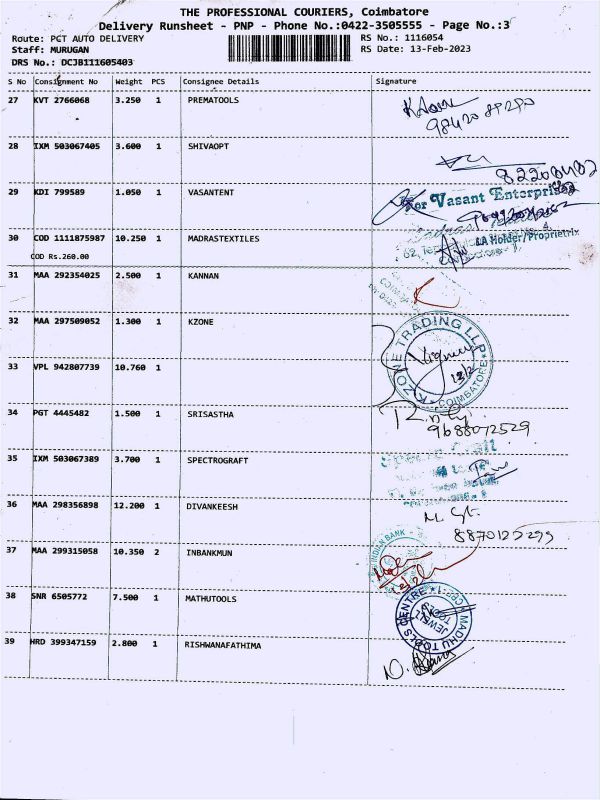 THE PROFESSIONAL COURIERS, Coimbatore
Delivery Runsheet - PNP - Phone No.:0422-3505555 - Page No.:3
Route: PCT AUTO DELIVERY RS No.: 1116054
Staff: MURUGAN RS Date: 13-Feb-2023
DRS No.: DCJB111605403
S No Consignment No Weight PCS Consignee Details Signature
27 KVT 2766068 3.250 1 PREMATOOLS
28 IXM 503067405 3.600 1 SHIVAOPT
29 KDI 799589 1.050 1 VASANTENT
For Vasant Enterprises
30 COD 1111875987 10.250 1 MADRASTEXTILES
LA Holder/Proprietrix
COD Rs.260.00
31 MAA 292354025 2.500 1 KANNAN
32 MAA 297509052 1.300 1 KZONE
K ZONE TRADING LLP
COIMBATORE
33 VPL 942807739 10.760 1
34 PGT 4445482 1.500 1 SRISASTHA
9688072529
35 IXM 503067389 3.700 1 SPECTROGRAFT
36 MAA 298356898 12.200 1 DIVANKEESH
8870125299
37 MAA 299315058 10.350 2 INBANKMUN
INDIAN BANK
38 SNR 6505772 7.500 1 MATHUTOOLS
MADHU TOOLS CENTRE
JEWEL
39 HRD 399347159 2.800 1 RISHWANAFATHIMA